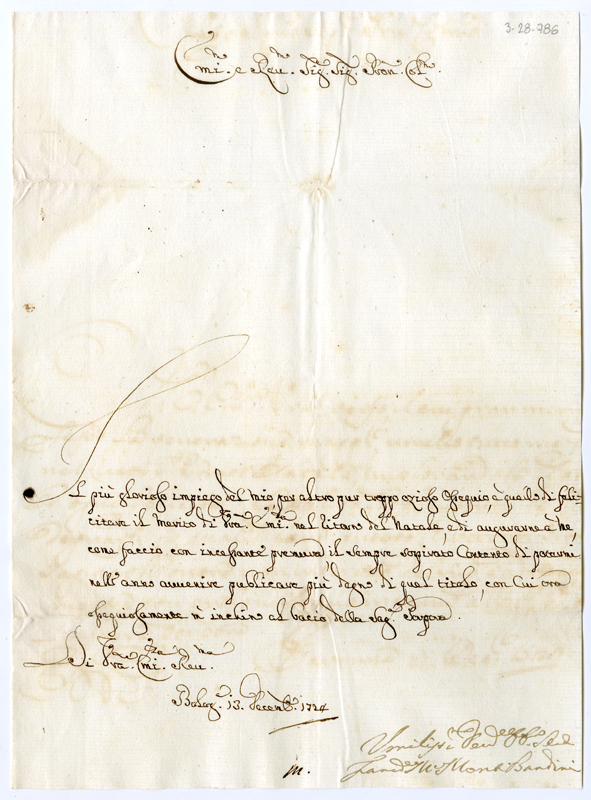 3-28-786
Emi. e Reu. Sig. Sig. Pron. Col.
Il più glorioso impiego del mio per altro pur troppo ozioso Ossequio, è quello di feli=
citare il Merito di Vra. Emi. nel Natale, e di augurarne à Me,
come faccio con incessante premura, il sempre sospirato Contento di potermi
nell'anno auuenire publicare più degno di quel titolo, con Cui ora
ossequiosamente m'inchino al bacio della Sag. Porpora.
Di Vra. Emi. Reu.
Bolog. 13. Decemb. 1724